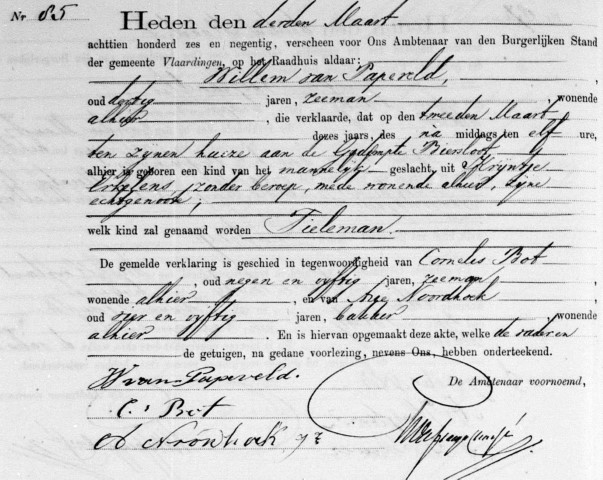 Nr 85 Heden den derden Maart
achttien honderd zes en negentig, verscheen voor Ons Ambtenaar van den Burgerlijken Stand
der gemeente Vlaardingen, op het Raadhuis aldaar:
Willem van Papeveld,
oud dertig jaren, zeeman wonende
alhier, die verklaarde, dat op den tweeden Maart
dezes jaars, des na middags ten elf ure,
ten zijnen huize aan de Gedempte Biersloot
alhier is geboren een kind van het mannelijk geslacht, uit Krijntje
Erkelens, zonder beroep, mede wonende alhier, zijne
echtgenoot;
welk kind zal genaamd worden Tieleman.
De gemelde verklaring is geschied in tegenwoordigheid van Cornelis Bot
, oud negen en vijftig jaren, zeeman
wonende alhier, en van Arie Noordhoek
oud vier en vijftig jaren, bakker wonende
alhier. En is hiervan opgemaakt deze akte, welke de vader en
de getuigen, na gedane voorlezing, nevens Ons, hebben onderteekend.
W van Papeveld. De Ambtenaar voornoemd,
C. Bot